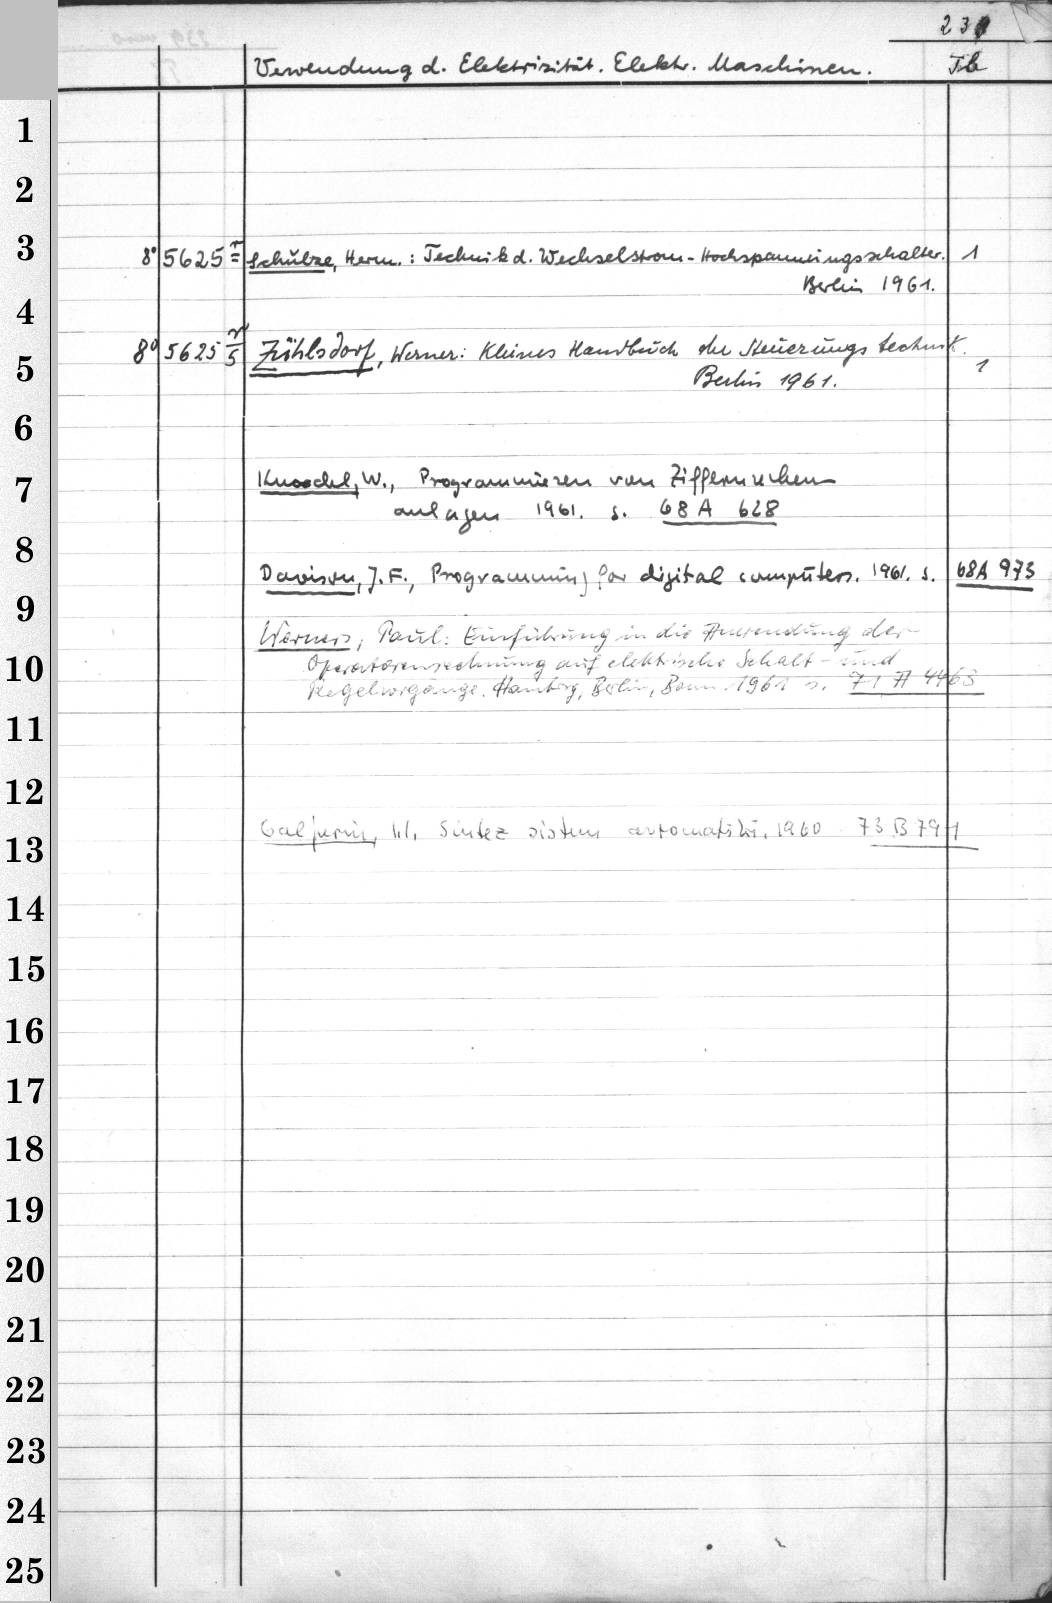 Verwendung d. Elektrizität. Elektr. Maschinen. Tb
1
2
3
8° 5625 Schulze, Herm.: Technik d. Wechselstrom-Hochspannungsschalter. 1
Berlin 1961.
4
8° 5625 r/5 Zühlsdorf, Werner: Kleines Handbuch der Steuerungstechnik. 1
5
Berlin 1961.
6
7
W., Programmieren von Ziffernrechen-
anlagen 1961. s. 68 A 628
8
Davison, J. F., Programming for digital computers. 1961. s. 68A 973
9
Werners, Paul: Einführung in die Anwendung der
10
Operatorenrechnung auf elektrische Schalt- und
Regelvorgänge. Hamburg, Berlin, Bonn 1961 s. 71 A 4463
11
12
Galperin, I.I. Sintez sistem avtomatiki. 1960 73 B 791
13
14
15
16
17
18
19
20
21
22
23
24
25